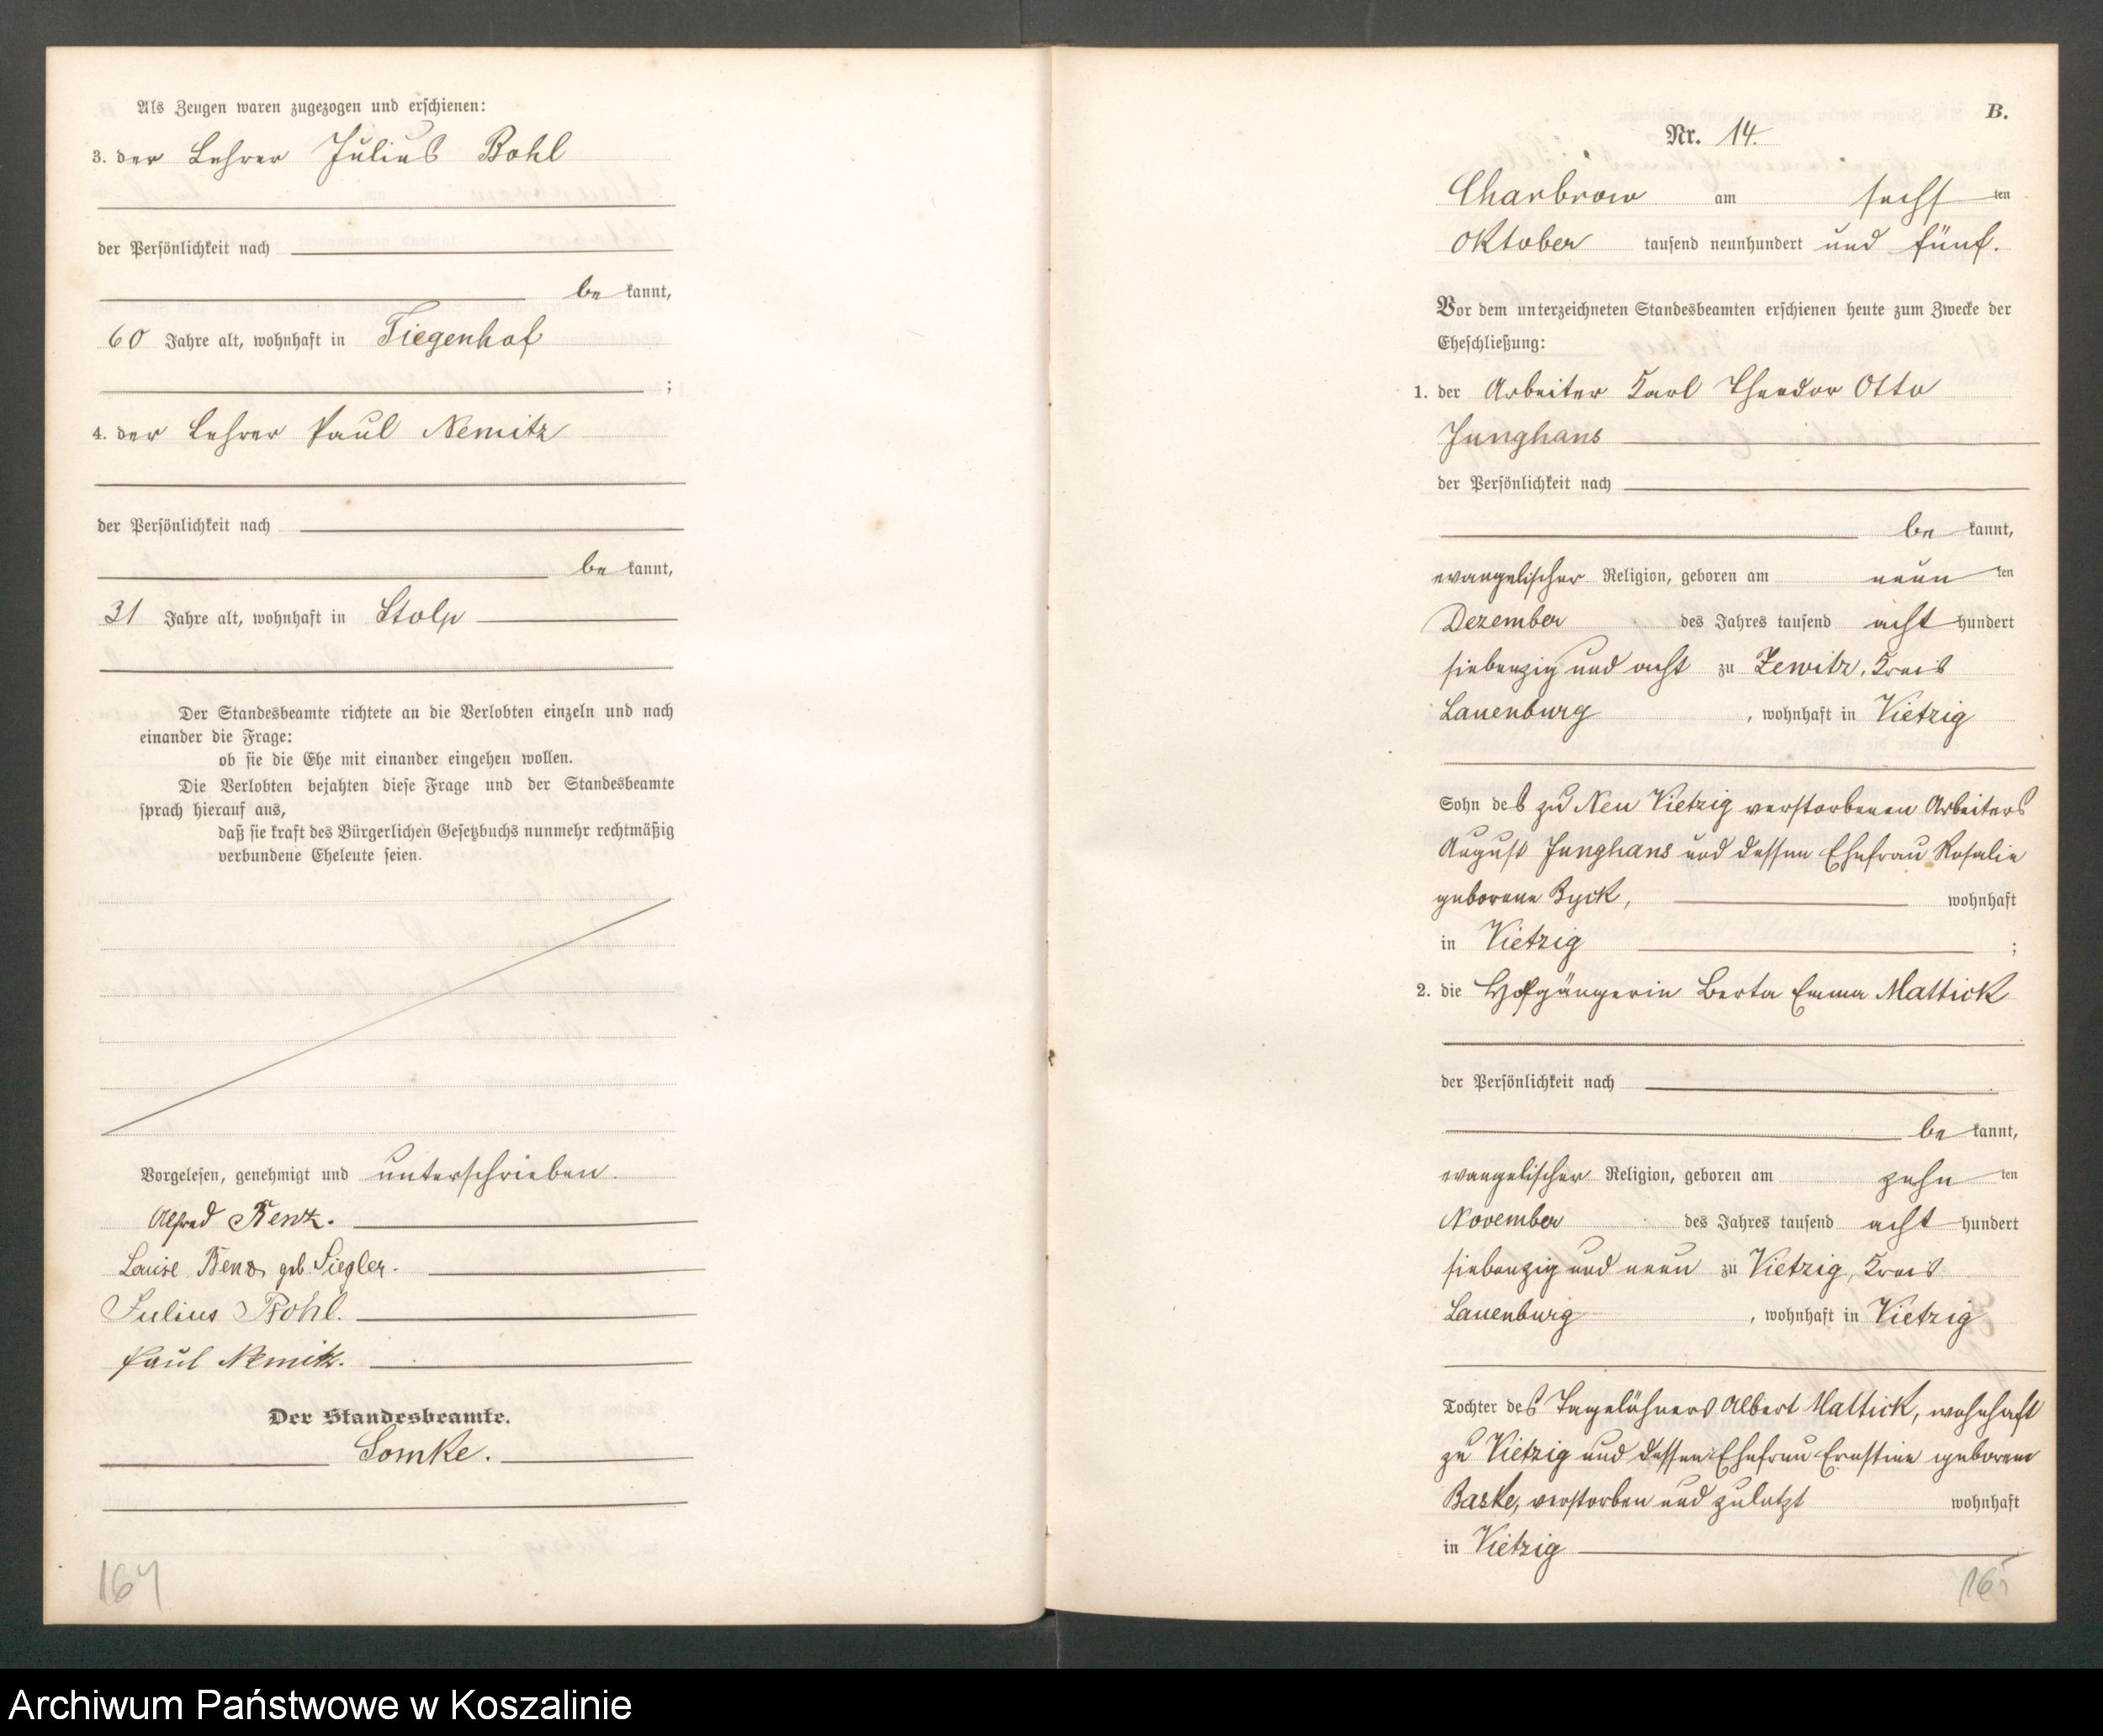 Als Zeugen waren zugezogen und erschienen:
3. der Lehrer Julius Bohl
der Persönlichkeit nach
be kannt,
60 Jahre alt, wohnhaft in Tiegenhof
;
4. der Lehrer Paul Nemitz
der Persönlichkeit nach
be kannt,
31 Jahre alt, wohnhaft in Stolp
Der Standesbeamte richtete an die Verlobten einzeln und nach
einander die Frage:
ob sie die Ehe mit einander eingehen wollen.
Die Verlobten bejahten diese Frage und der Standesbeamte
sprach hierauf aus,
daß sie kraft des Bürgerlichen Gesetzbuchs nunmehr rechtmäßig
verbundene Eheleute seien.
Vorgelesen, genehmigt und unterschrieben.
Alfred Benz.
Louise Benz geb Siegler.
Julius Bohl.
Paul Nemitz.
Der Standesbeamte.
Somke.
164
B.
Nr. 14.
Charbrow am sechs ten
Oktober tausend neunhundert und fünf.
Vor dem unterzeichneten Standesbeamten erschienen heute zum Zwecke der
Eheschließung:
1. der Arbeiter Karl Theodor Otto
Junghans
der Persönlichkeit nach
be kannt,
evangelischer Religion, geboren am neun ten
Dezember des Jahres tausend acht hundert
siebenzig und acht zu Zewitz, Kreis
Lauenburg , wohnhaft in Vietzig
Sohn des zu Neu Vietzig verstorbenen Arbeiters
August Junghans und dessen Ehefrau Rosalie
geborene Byck, wohnhaft
in Vietzig ;
2. die Hofgängerin Berta Emma Mattick
der Persönlichkeit nach
be kannt,
evangelischer Religion, geboren am zehn ten
November des Jahres tausend acht hundert
siebenzig und neun zu Vietzig, Kreis
Lauenburg , wohnhaft in Vietzig
Tochter des Tagelöhners Albert Mattick, wohnhaft
zu Vietzig und dessen Ehefrau Ernstine geborene
Baske, verstorben und zuletzt wohnhaft
in Vietzig
165
Archiwum Państwowe w Koszalinie